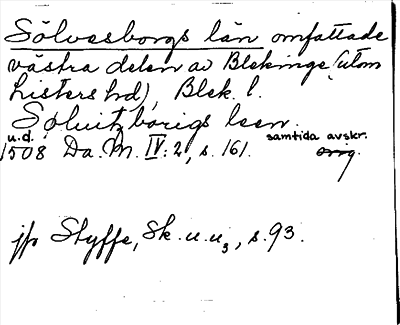 Sölvesborgs län omfattade
västra delen av Blekinge (utom
Listers hd), Blek. l.
Søluitzborigs leen.
u.d. samtida avskr.
1508 Da. M. IV: 2, s. 161. orig.
jfr Styffe, Sk. u. u3, s. 93.